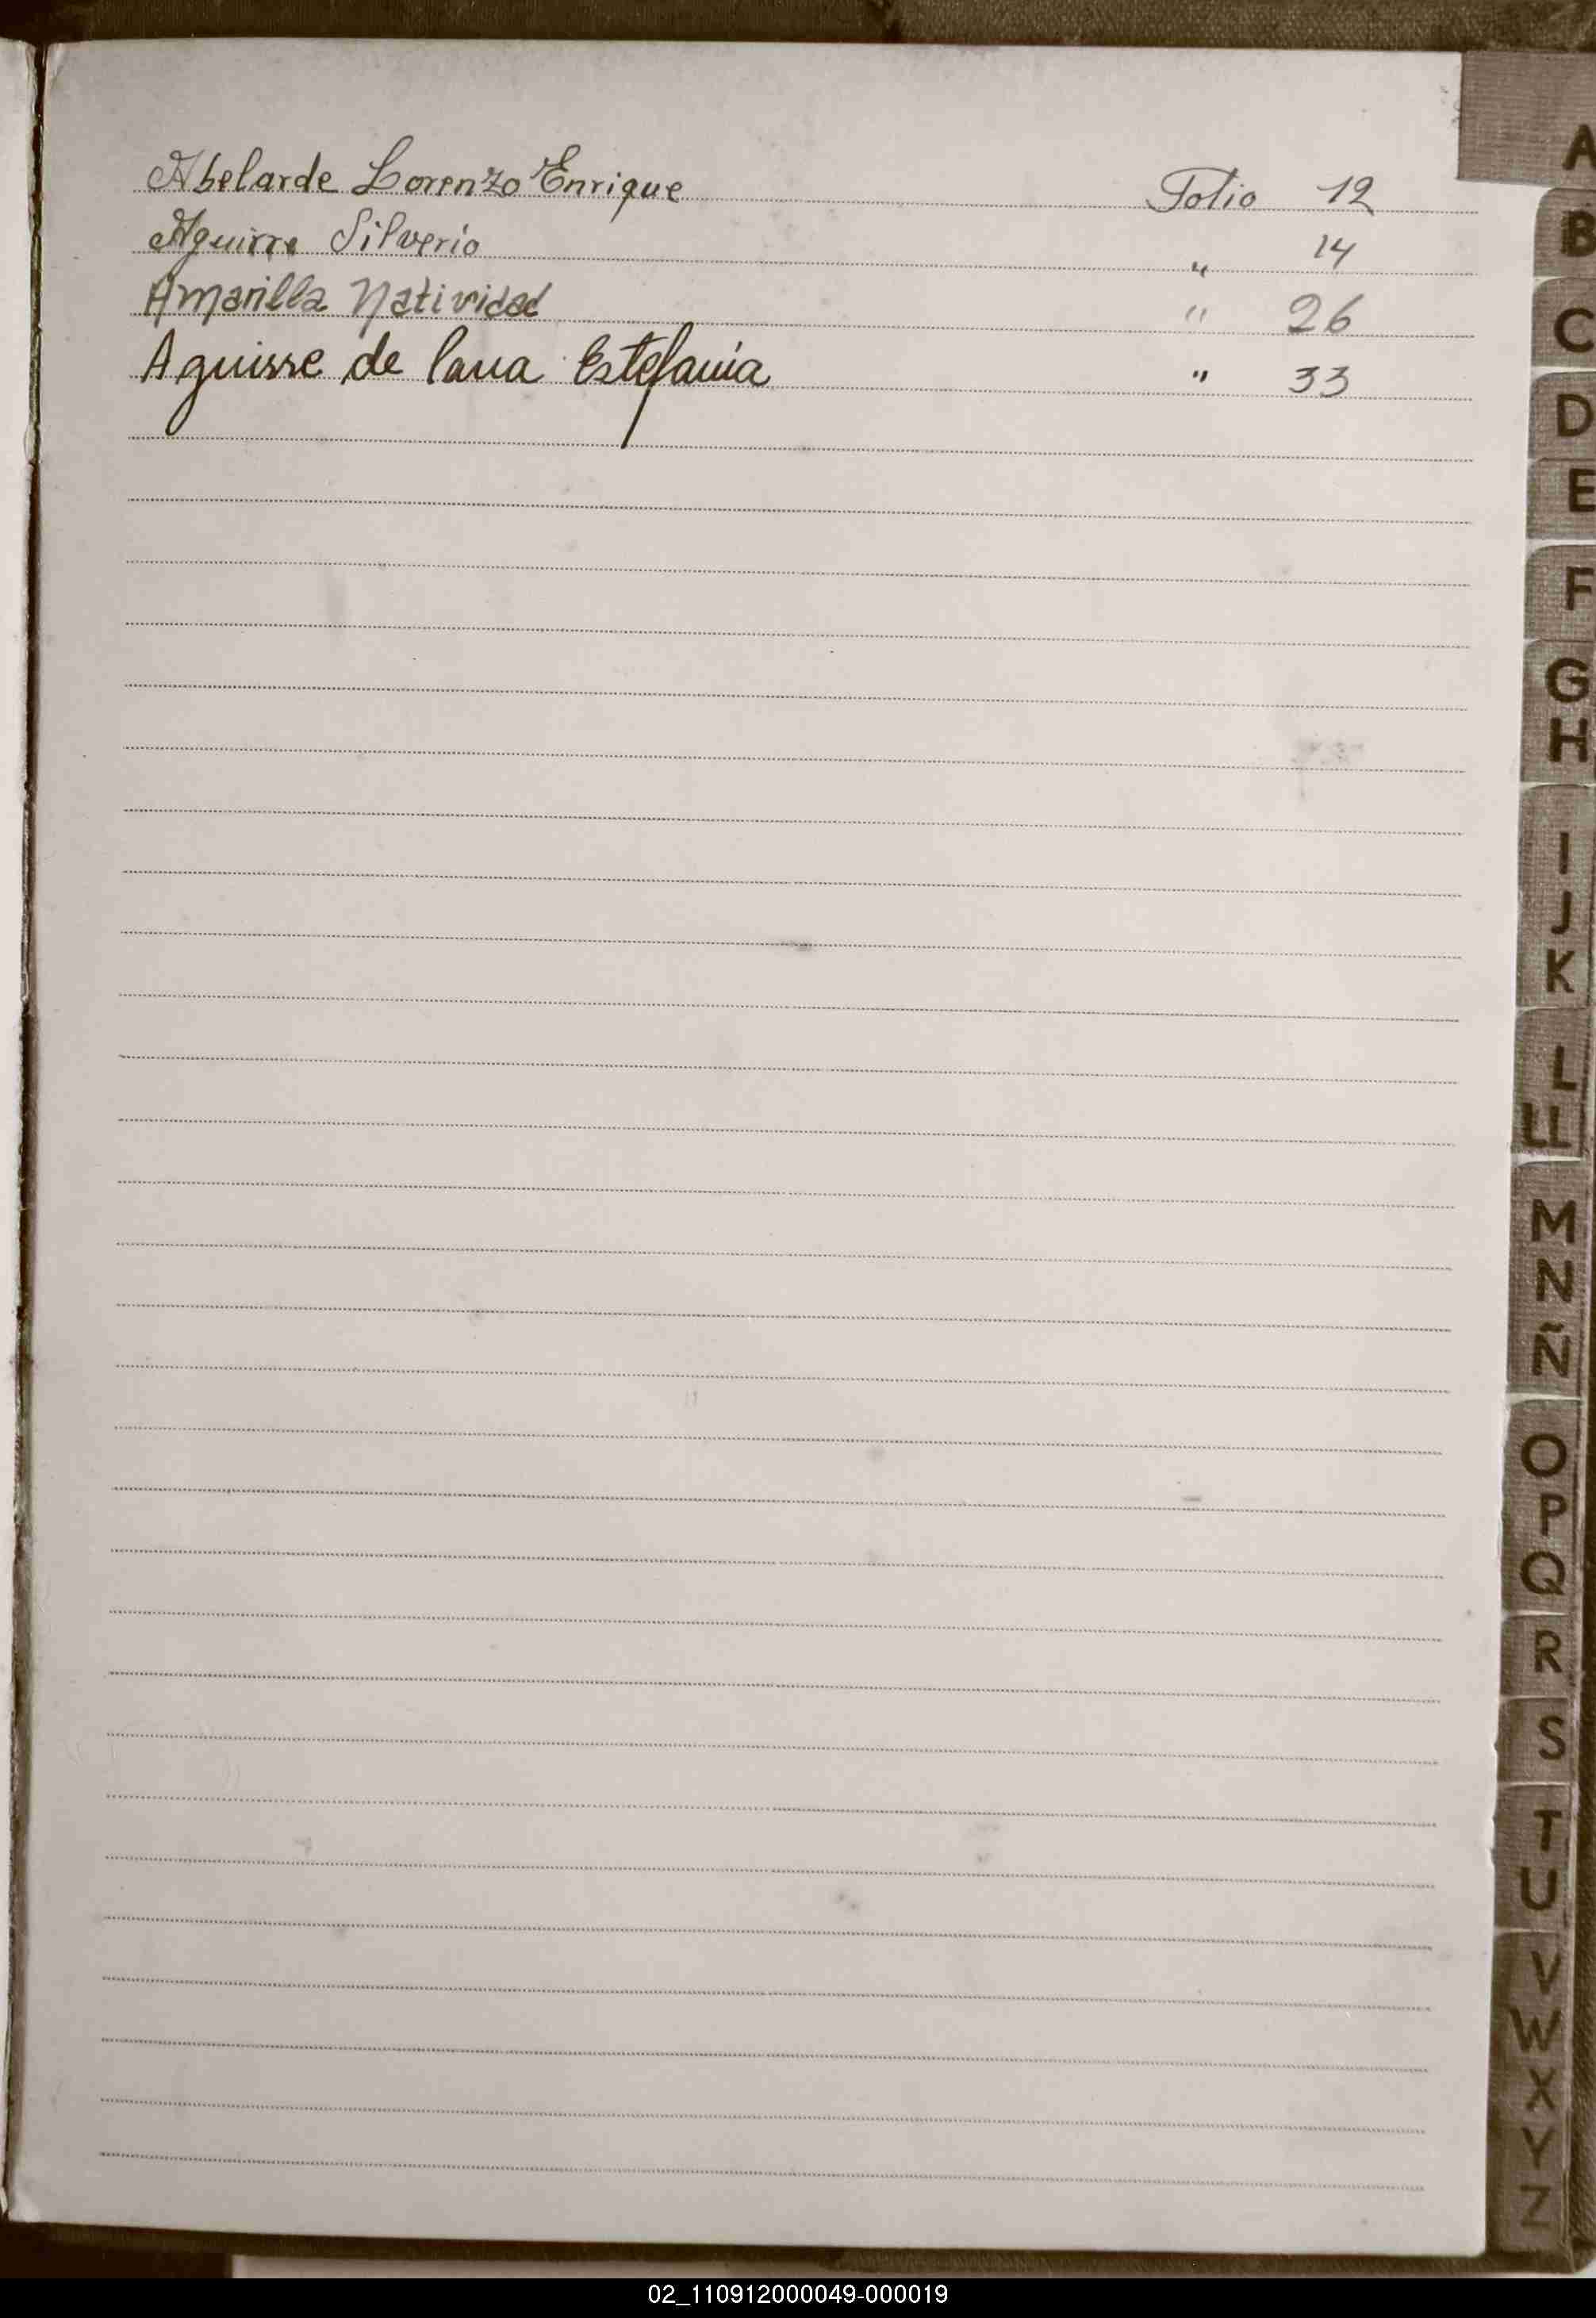 Abelarde Lorenzo Enrique Folio 12
Aguirre Silverio " 14
Amarilla Natividad " 26
Aguirre de Lana Estefania " 33
A
B
C
D
E
F
G
H
I
J
K
L
Ll
M
N
Ñ
O
P
Q
R
S
T
U
V
W
X
Y
Z
02_110912000049-000019